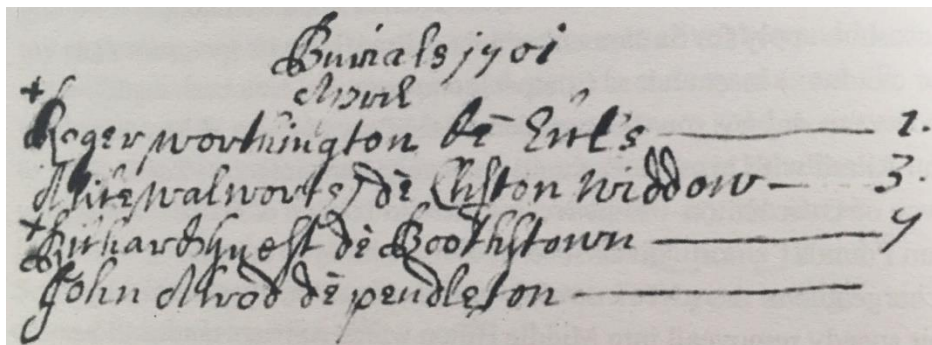 Burials 1701
April
+ Roger Worthington de Eccles — 1.
Alice Walworke de Clifton Widdow — 3.
+ Richard Guest de Boothstown — 4
John Awod de pendleton —